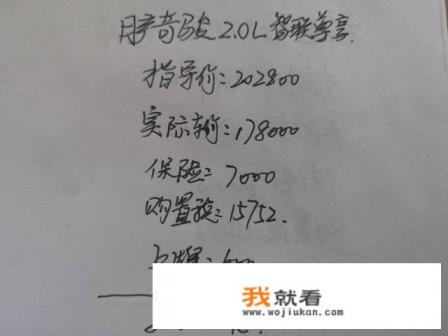 日产奇骏2.0L智联尊享
指导价:202800
实际车价:178000
保险:7000
购置税:15752.
上牌:600
我就看
www.wojiukan.com